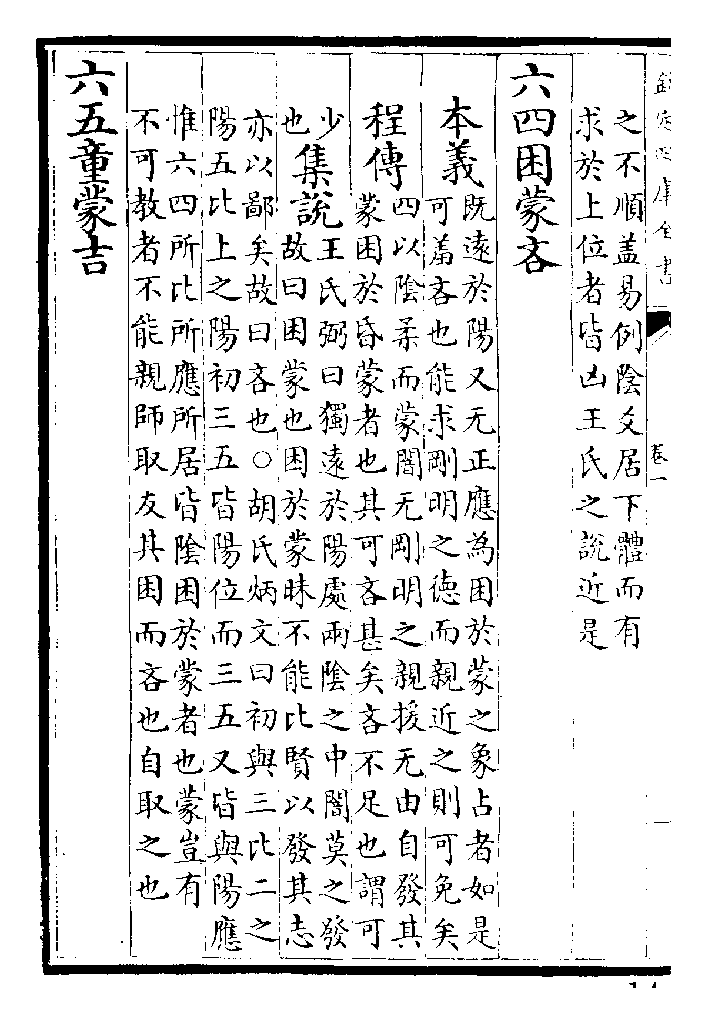 欽定四庫全書
卷一
之不順盖易例陰爻居下體而有
求於上位者皆凶王氏之說近是
六四困蒙吝
本義既遠於陽又无正應為困於蒙之象占者如是
可羞吝也能求剛明之德而親近之則可免矣
程傳四以陰柔而蒙闇无剛明之親援无由自發其
蒙困於昏蒙者也其可吝甚矣吝不足也謂可
少
也集說王氏弼曰獨遠於陽處兩陰之中闇莫之發
故曰困蒙也困於蒙昧不能比賢以發其志
亦以鄙矣故曰吝也○胡氏炳文曰初與三比二之
陽五比上之陽初三五皆陽位而三五又皆與陽應
惟六四所比所應所居皆陰困於蒙者也蒙豈有
不可教者不能親師取友其困而吝也自取之也
六五童蒙吉